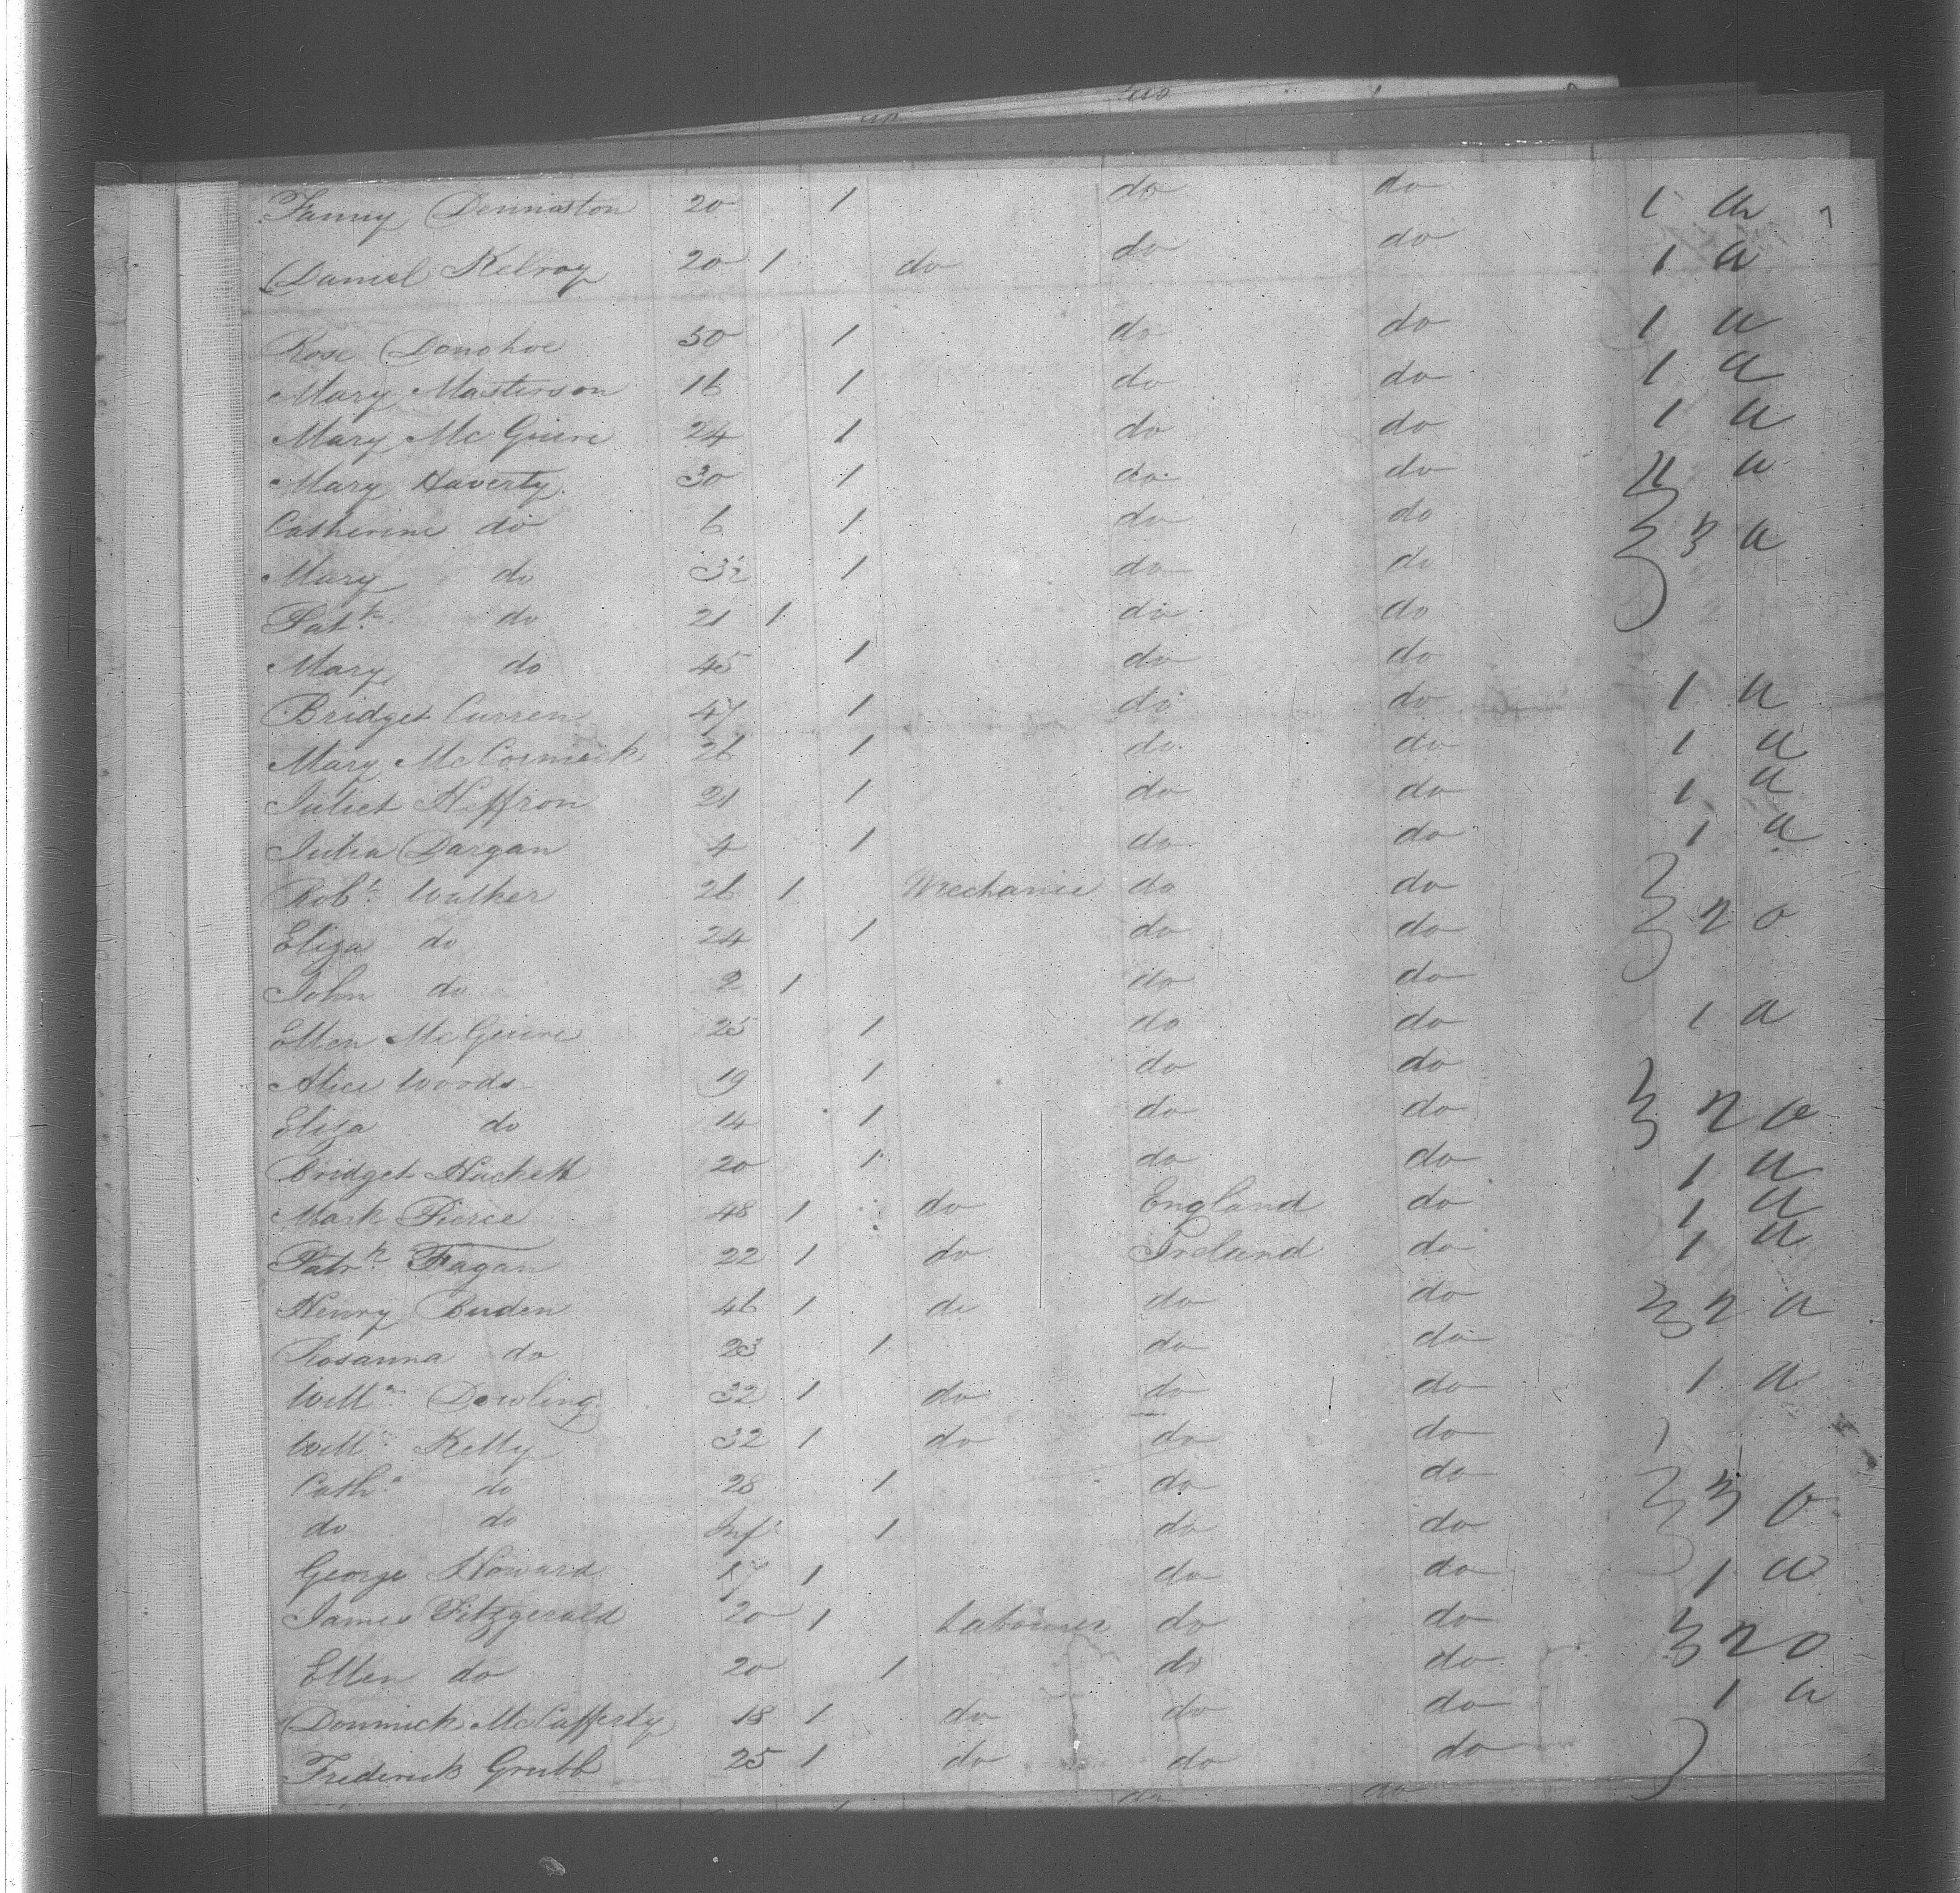 Fanny Denniston 20 1 do do 1 a
Daniel Kelroy 20 1 do do do 1 a
Rose Donohoe 50 1 do do 1 a
Mary Masterson 16 1 do do 1 a
Mary McGuire 24 1 do do 1 a
Mary Haverty 30 1 do do a
Catherine do 6 1 do do 3 a
Mary do 1 do do
Patk do 21 1 do do
Mary do 45 1 do do
Bridget Curren 47 1 do do 1 a
Mary McCormick 26 1 do do 1 a
Juliet Heffron 21 1 do do 1 a
Julia Dargan 4 1 do do 1 a
Robt Walker 26 1 Mechanic do do 2 0
Eliza do 24 1 do do
John do 2 1 do do
Ellen McGuire 25 1 do do 1 a
Alice Woods 19 1 do do
Eliza do 14 1 do do 2 a
Bridget Hackett 20 1 do do 1 a
Mark Pierce 48 1 do England do 1 a
Patrk Fagan 22 1 do Ireland do 1 a
Henry Buden 46 1 do do do 2 a
Rosanna do 23 1 do do
Willm Dowling 32 1 do do do 1 a
Willm Kelly 32 1 do do do
Cathe do 28 1 do do 3 0
do do Inft 1 do do
George Howard 17 1 do do 1 a
James Fitzgerald 20 1 Labourer do do 2 0
Ellen do 20 1 do do
Dominick McCafferty 18 1 do do do 1 a
Frederick Grubb 25 1 do do do